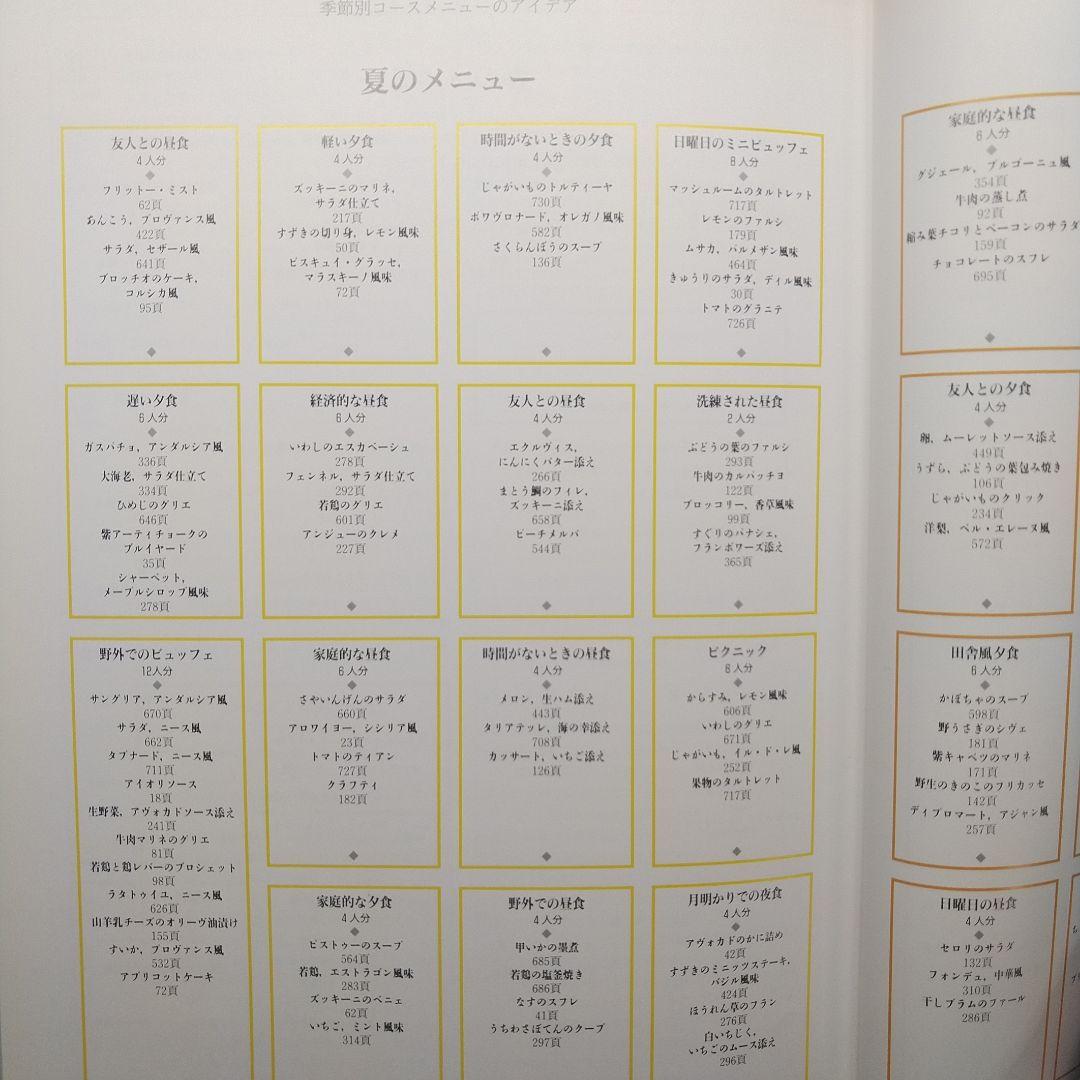 季節別コースメニューのアイデア
夏のメニュー
友人との昼食
4人分
フリットー・ミスト
62頁
あんこう，プロヴァンス風
422頁
サラダ，セザール風
641頁
ブロッチオのケーキ，
コルシカ風
95頁
軽い夕食
4人分
ズッキーニのマリネ，
サラダ仕立て
217頁
すずきの切り身，レモン風味
50頁
ビスキュイ・グラッセ，
マラスキーノ風味
72頁
時間がないときの夕食
4人分
じゃがいものトルティーヤ
730頁
ポワヴロナード，オレガノ風味
582頁
さくらんぼうのスープ
136頁
日曜日のミニビュッフェ
8人分
マッシュルームのタルトレット
717頁
レモンのファルシ
179頁
ムサカ，パルメザン風味
464頁
きゅうりのサラダ，ディル風味
30頁
トマトのグラニテ
726頁
遅い夕食
6人分
ガスパチョ，アンダルシア風
336頁
大海老，サラダ仕立て
334頁
ひめじのグリエ
646頁
紫アーティチョークの
ブルイヤード
35頁
シャーベット，
メープルシロップ風味
278頁
経済的な昼食
6人分
いわしのエスカベーシュ
278頁
フェンネル，サラダ仕立て
292頁
若鶏のグリエ
601頁
アンジューのクレメ
227頁
友人との昼食
4人分
エクルヴィス，
にんにくバター添え
266頁
まとう鯛のフィレ，
ズッキーニ添え
658頁
ピーチメルバ
544頁
洗練された昼食
2人分
ぶどうの葉のファルシ
293頁
牛肉のカルパッチョ
122頁
ブロッコリー，香草風味
99頁
すぐりのパナシェ，
フランボワーズ添え
365頁
野外でのビュッフェ
12人分
サングリア，アンダルシア風
670頁
サラダ，ニース風
662頁
タプナード，ニース風
711頁
アイオリソース
18頁
生野菜，アヴォカドソース添え
241頁
牛肉マリネのグリエ
81頁
若鶏と鶏レバーのブロシェット
98頁
ラタトゥイユ，ニース風
626頁
山羊乳チーズのオリーヴ油漬け
155頁
すいか，プロヴァンス風
532頁
アプリコットケーキ
72頁
家庭的な昼食
6人分
さやいんげんのサラダ
660頁
アロワイヨー，シシリア風
23頁
トマトのティアン
727頁
クラフティ
182頁
時間がないときの昼食
4人分
メロン，生ハム添え
443頁
タリアテッレ，海の幸添え
708頁
カッサート，いちご添え
126頁
ピクニック
6人分
からすみ，レモン風味
606頁
いわしのグリエ
671頁
じゃがいも，イル・ド・レ風
252頁
果物のタルトレット
717頁
家庭的な夕食
4人分
ピストゥーのスープ
564頁
若鶏，エストラゴン風味
283頁
ズッキーニのベニェ
62頁
いちご，ミント風味
314頁
野外での昼食
4人分
甲いかの墨煮
685頁
若鶏の塩釜焼き
686頁
なすのスフレ
41頁
うちわさぼてんのクープ
297頁
月明かりでの夜食
4人分
アヴォカドのかに詰め
42頁
すずきのミニッツステーキ，
バジル風味
424頁
ほうれん草のフラン
276頁
白いちじく，
いちごのムース添え
296頁
家庭的な昼食
6人分
グジェール，ブルゴーニュ風
354頁
牛肉の蒸し煮
92頁
縮み葉チコリとベーコンのサラダ
159頁
チョコレートのスフレ
695頁
友人との夕食
4人分
卵，ムーレットソース添え
449頁
うずら，ぶどうの葉包み焼き
106頁
じゃがいものクリック
234頁
洋梨，ベル・エレーヌ風
572頁
田舎風夕食
6人分
かぼちゃのスープ
598頁
野うさぎのシヴェ
181頁
紫キャベツのマリネ
171頁
野生のきのこのフリカッセ
142頁
ディプロマート，アジャン風
257頁
日曜日の昼食
4人分
セロリのサラダ
132頁
フォンデュ，中華風
310頁
干しプラムのファール
286頁